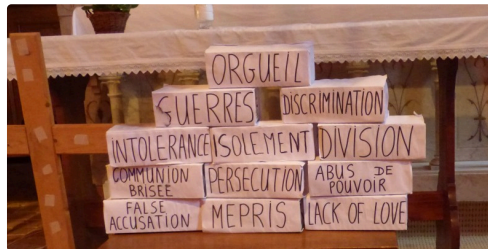 ORGUEIL
GUERRES
DISCRIMINATION
INTOLERANCE
ISOLEMENT
DIVISION
COMMUNION
BRISEE
PERSECUTION
ABUS DE
POUVOIR
FALSE
ACCUSATION
MEPRIS
LACK OF LOVE